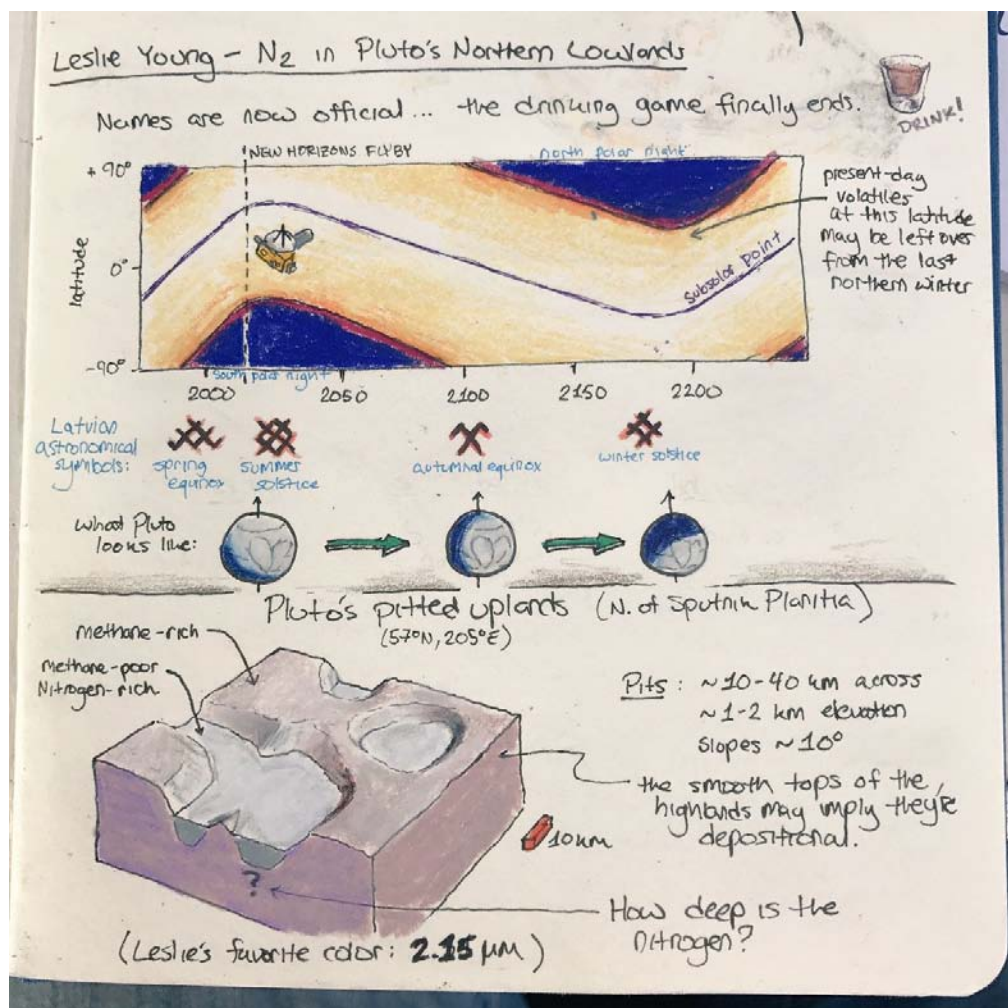 Leslie Young - N2 in Pluto's Northern Lowlands
Names are now official... the drinking game finally ends.
DRINK!
NEW HORIZONS FLYBY
north polar night
+90°
0°
-90°
latitude
subsolar point
south polar night
2000 2050 2100 2150 2200
present-day
volatiles
at this latitude
may be left over
from the last
northern winter
Latvian
astronomical
symbols:
spring
equinox
summer
solstice
autumnal equinox
winter solstice
What Pluto
looks like:
Pluto's pitted uplands (N. of Sputnik Planitia)
(57°N, 205°E)
methane-rich
methane-poor
Nitrogen-rich
Pits: ~10-40 km across
~1-2 km elevation
Slopes ~10°
the smooth tops of the
highlands may imply they're
depositional.
10km
?
How deep is the
nitrogen?
(Leslie's favorite color: 2.15 µm)